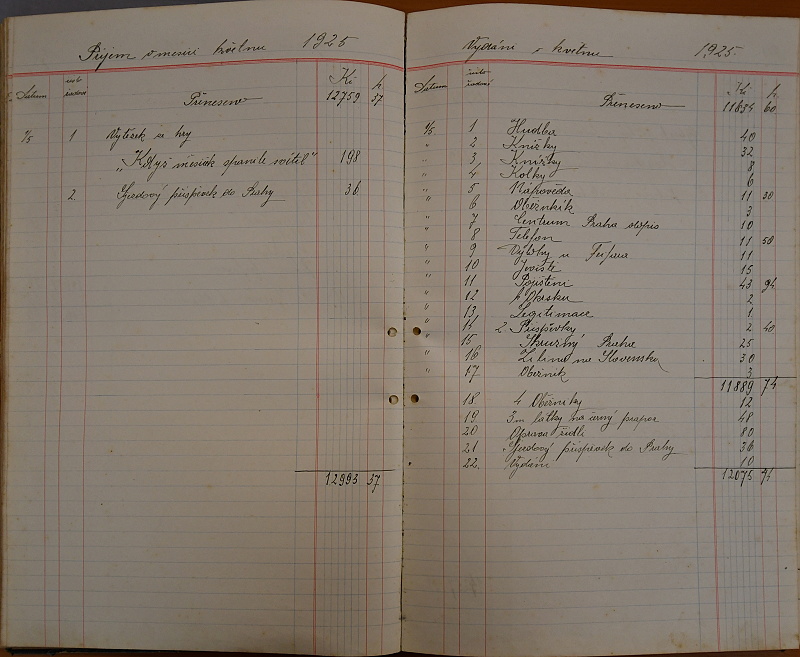 Příjem v měsíci květnu 1925
Datum Kč h
Přeneseno 12759 37
1/5 1 Výtěžek ze hry
„Když měsíček spanile svítil" 198
2. Sjezdový příspěvek do Prahy 36
12993 37
Vydání v květnu 1925.
Datum Kč h
Přeneseno 60
1/5 1 Hudba 40
" 2 Knížky 32
" 3 Knížky 8
" 4 Kolky 6
" 5 Nápověda 11 30
" 6 Oběžník 3
" 7 Centrum Praha dopis 10
" 8 Telefon 11 50
" 9 Výlohy u 11
" 10 Jeviště 15
" 11 Pojištění 43 94
" 12 Okrsku 2
" 13 Legitimace 1
" 14 2 Příspěvky 2 40
" 15 Praha 25
" 16 Žilina na Slovensku 30
" 17 Oběžník 3
11889 74
18 4 Oběžníky 12
19 3m látky na černý prapor 48
20 Oprava židlí 80
21 Sjezdový příspěvek do Prahy 36
22. Vydání 10
12075 74